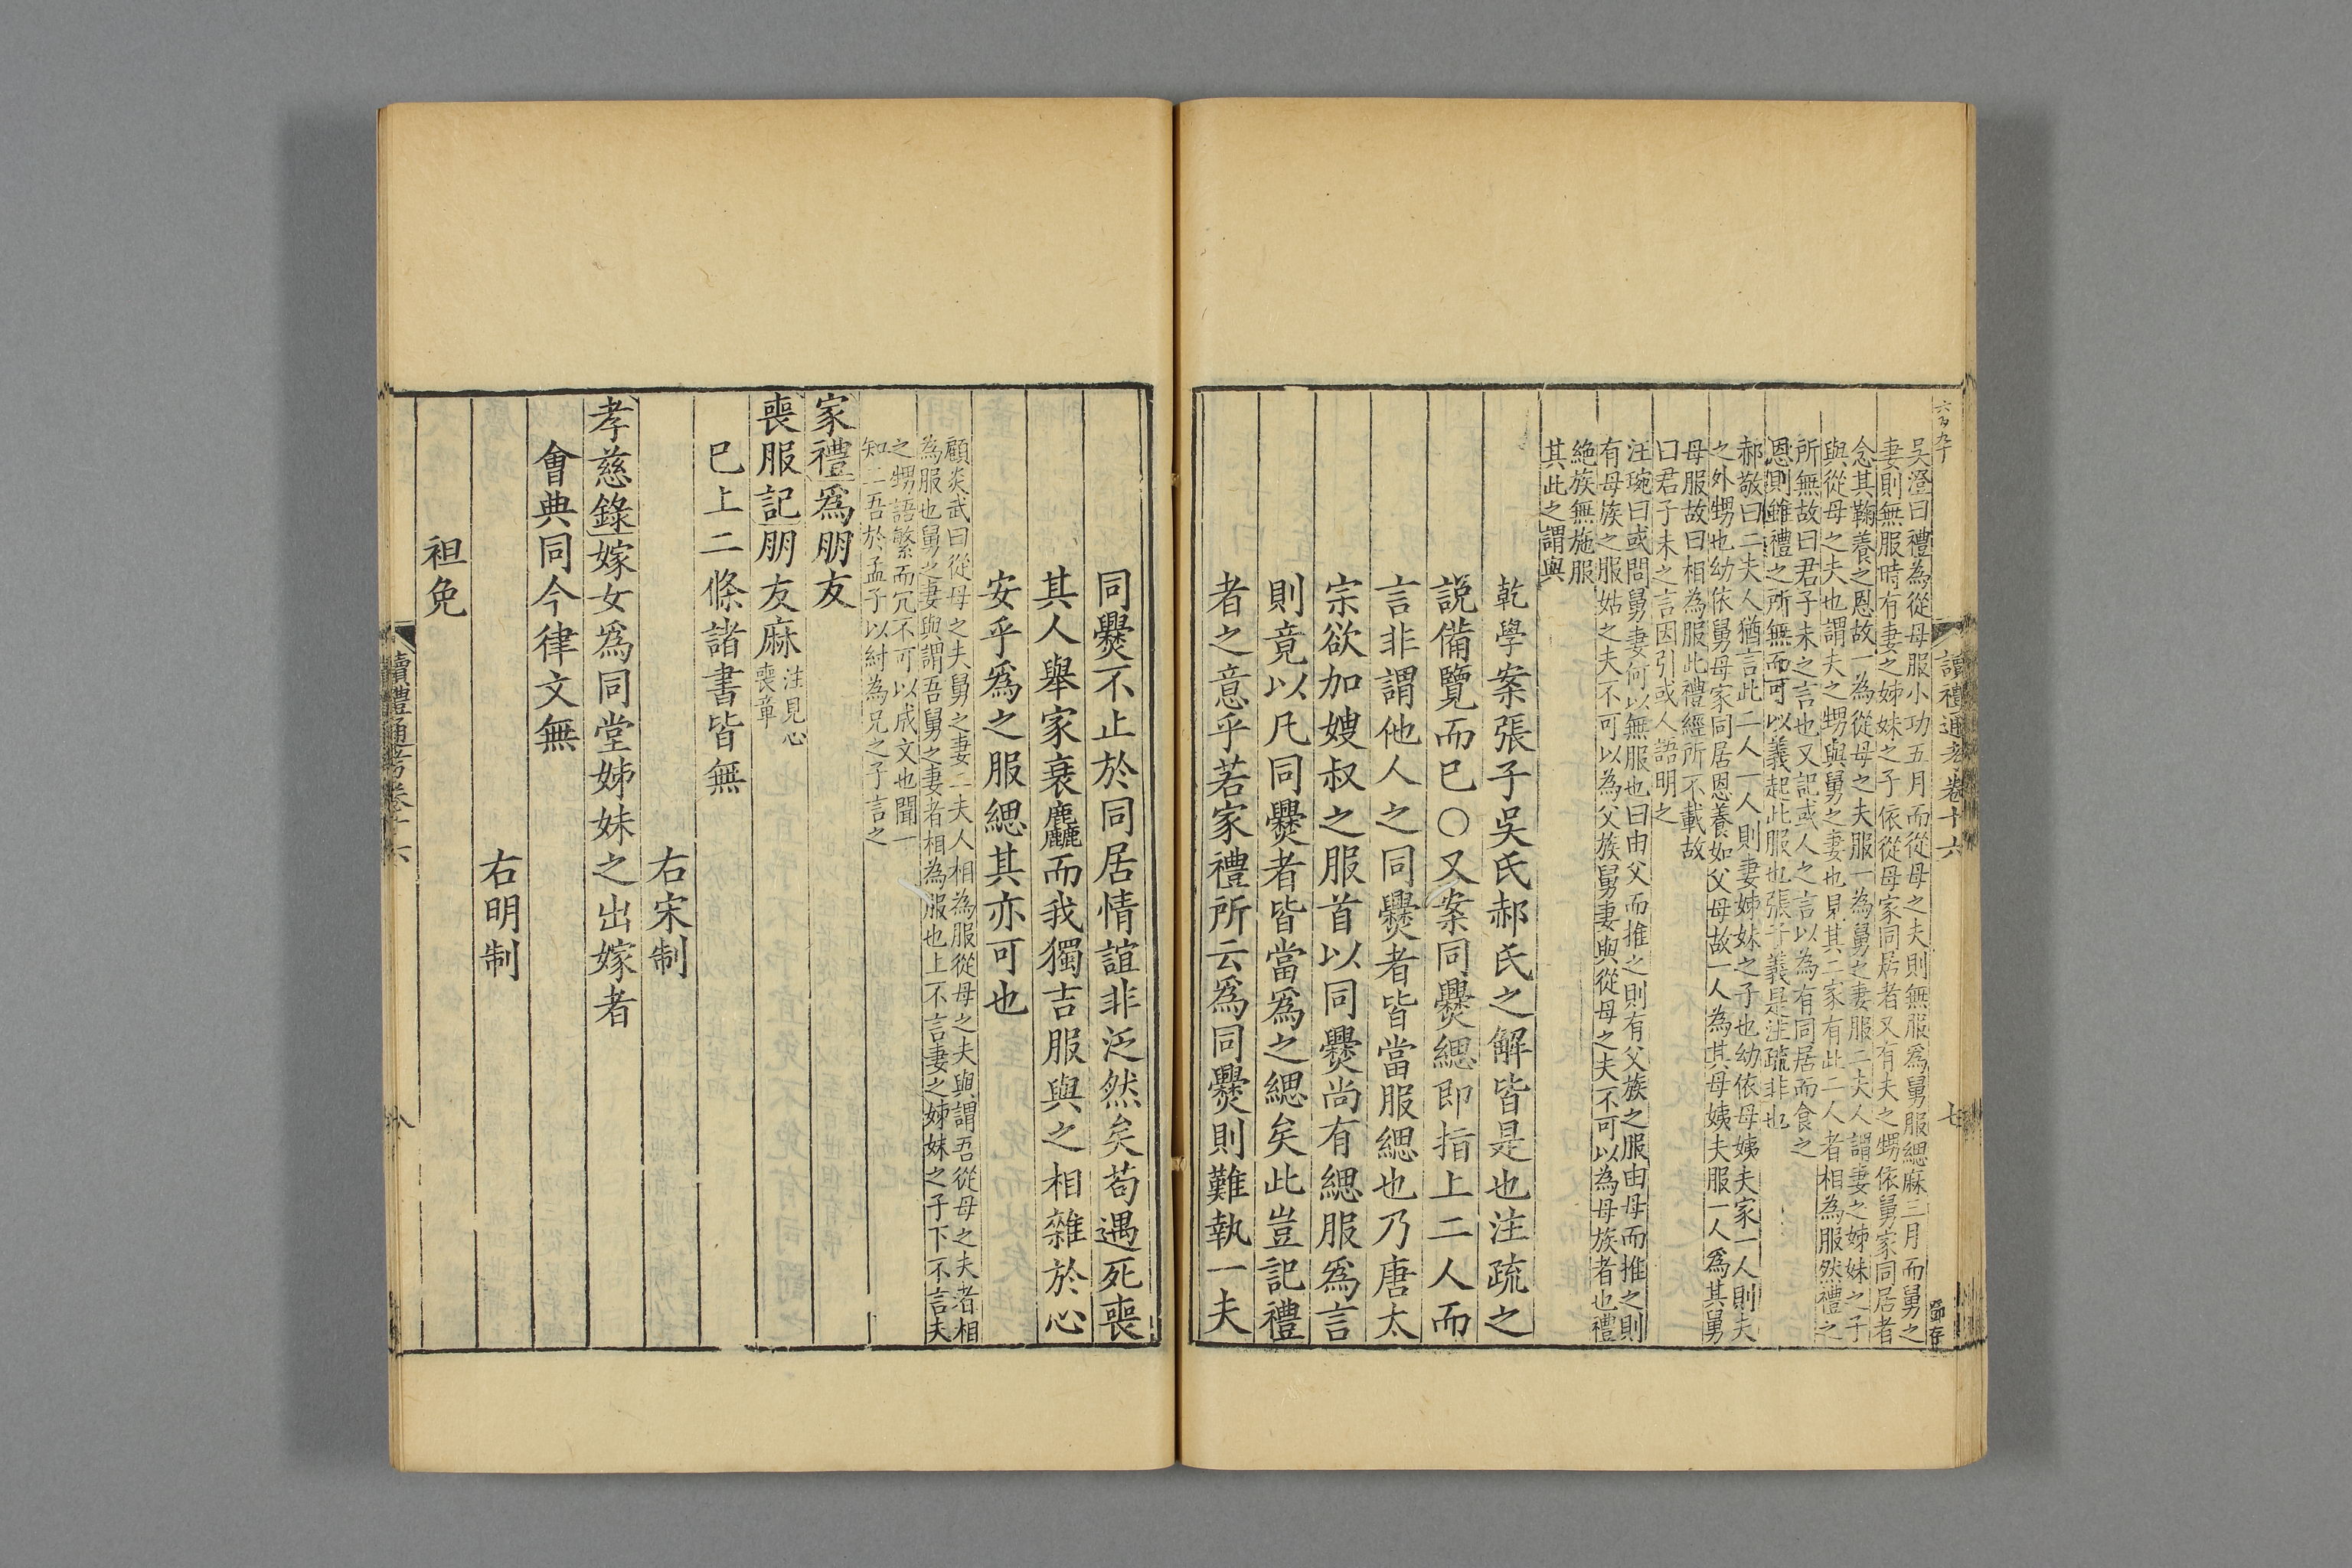 六百九十
讀禮通考卷十六
七
吳澄曰禮為從母服小功五月而從母之夫則無服爲舅服緦麻三月而舅之
妻則無服時有妻之姊妹之子依從母家同居者又有夫之甥依舅家同居者
念其鞠養之恩故一為從母之夫服一為舅之妻服二夫人謂妻之姊妹之子
與從母之夫也謂夫之甥與舅之妻也見其二家有此二人者相為服然禮之
所無故曰君子未之言也又記或人之言以為有同居而食之
恩則雖禮之所無而可以義起此服也張子義是注疏非也
郝敬曰二夫人猶言此二人一人則妻姊妹之子也幼依母姨夫家一人則夫
之外甥也幼依舅母家同居恩養如父母故一人為其母姨夫服一人爲其舅
母服故曰相為服此禮經所不載故
曰君子未之言因引或人語明之
汪琬曰或問舅妻何以無服也曰由父而推之則有父族之服由母而推之則
有母族之服姑之夫不可以為父族舅妻與從母之夫不可以為母族者也禮
絶族無施服
其此之謂與
乾學案張子吳氏郝氏之解皆是也注疏之
說備覽而已○又案同爨緦即指上二人而
言非謂他人之同爨者皆當服緦也乃唐太
宗欲加嫂叔之服首以同爨尚有緦服爲言
則竟以凡同爨者皆當爲之緦矣此豈記禮
者之意乎若家禮所云爲同爨則難執一夫
同爨不止於同居情誼非泛然矣苟遇死喪
其人舉家衰麤而我獨吉服與之相雜於心
安乎爲之服緦其亦可也
顧炎武曰從母之夫舅之妻二夫人相為服從母之夫與謂吾從母之夫者相
為服也舅之妻與謂吾舅之妻者相為服也上不言妻之姊妹之子下不言夫
之甥語繁而冗不可以成文也聞一
知二吾於孟子以紂為兄之子言之
家禮爲朋友
喪服記朋友麻注見心
喪章
已上二條諸書皆無
右宋制
孝慈錄嫁女爲同堂姊妹之出嫁者
會典同今律文無
右明制
袒免
讀禮通考卷十六
八